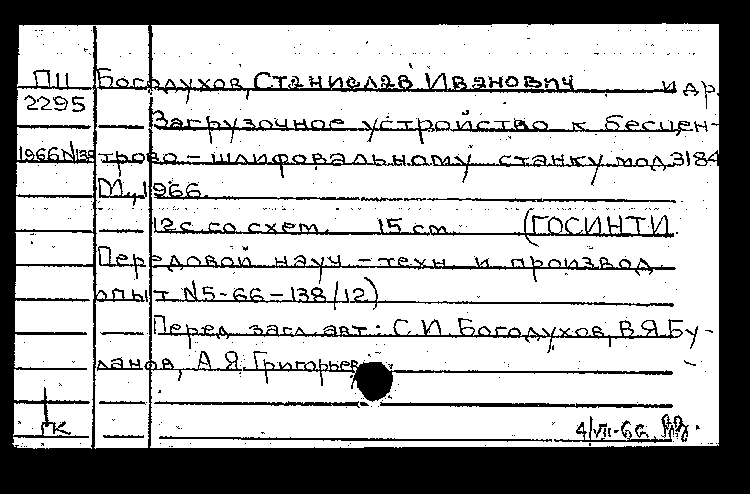 ПII Богодухов, Станислав Иванович и др.
2295
Загрузочное устройство к бесцен-
1966 N138 трово-шлифовальному станку мод. 3184
М., 1966.
12 с. со схем. 15 см. (ГОСИНТИ.
Передовой науч.-техн. и производ.
опыт N5-66-138/12)
Перед загл. авт.: С.И. Богодухов, В.Я. Бу-
ланов, А.Я. Григорьев
ГК